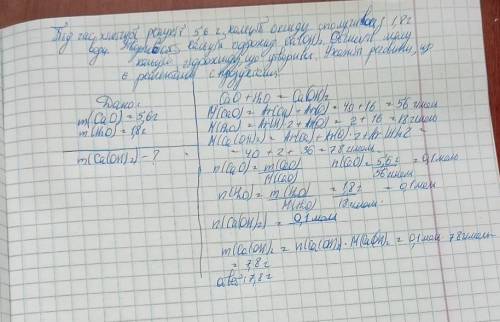 Під час хімічної реакції 5,6 г кальцій оксиду сполучився 1,8 г
води. Утворився кальцій гідроксид Ca(OH)₂. Обчисли масу
кальцій гідроксиду, що утворився. Укажи речовини, що
є реагентами продуктами
Дано:
m(CaO) = 5,6 г
m(H₂O) = 1,8 г
m(Ca(OH)₂) - ?
CaO + H₂O = Ca(OH)₂
M(CaO) = Ar(Ca) + Ar(O) = 40 + 16 = 56 г/моль
M(H₂O) = Ar(H)·2 + Ar(O) = 2 + 16 = 18 г/моль
M(Ca(OH)₂) = Ar(Ca) + Ar(O)·2 + Ar(H)·2 =
40 + 2 + 36 = 78 г/моль.
n(CaO) = m(CaO)/M(CaO) n(CaO) = 5,6 г/56 г/моль = 0,1 моль
n(H₂O) = m(H₂O)/M(H₂O) = 1,8 г/18 г/моль = 0,1 моль
n(Ca(OH)₂) = 0,1 моль
m(Ca(OH)₂ = n(Ca(OH)₂ · M(Ca(OH)₂ = 0,1 моль · 78 г/моль
= 7,8 г
: 7,8 г